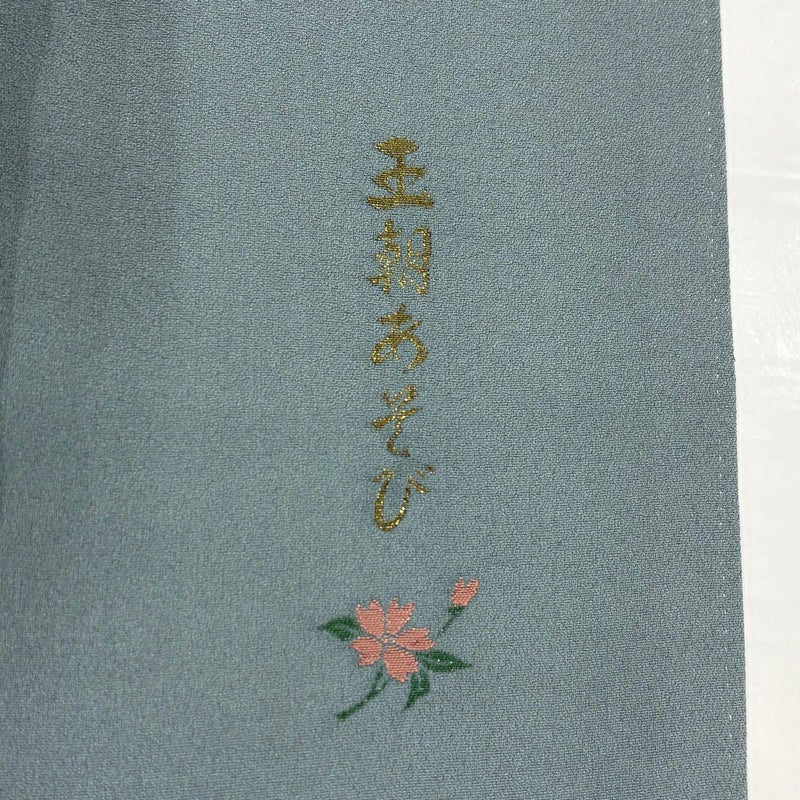 王朝あそび